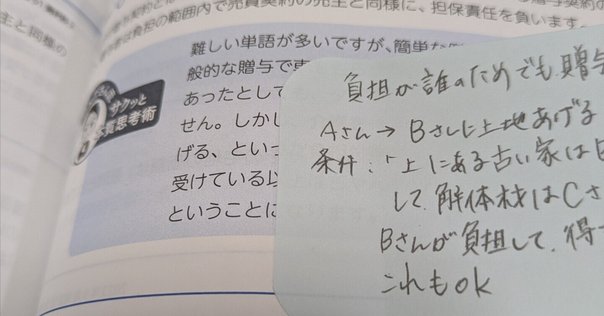 は負担の範囲内で売買契約の売主と同様に、担保責任を負います
主と同様の
サクッと
思考術
難しい単語が多いですが、簡単な
般的な贈与で
あったとして
せん。しかし
げる、といっ
受けている以
ということに
負担が誰のためでも贈与
Aさん→Bさんに土地あげる
条件:「上にある古い家は
して、解体材はCさ
Bさんが負担して、得
これもok